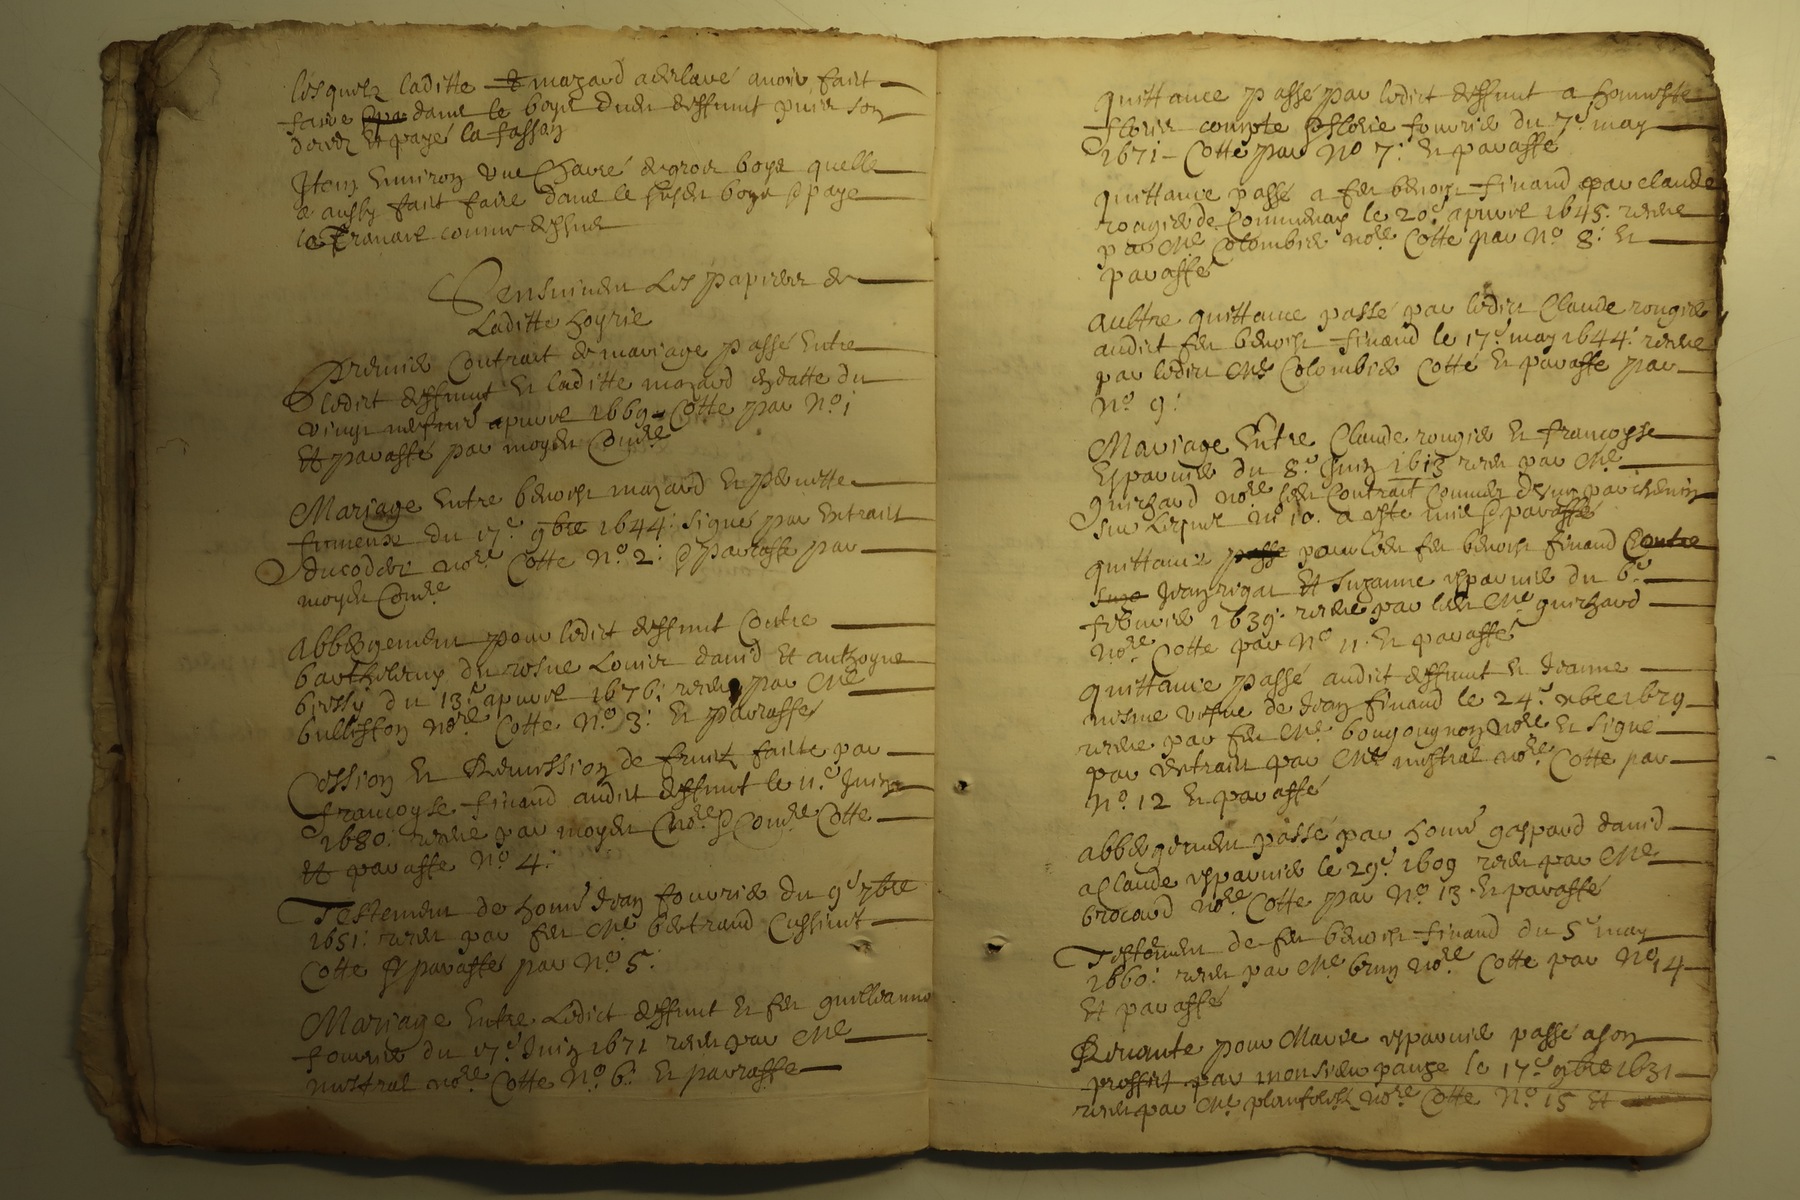 lesquelz laditte mazard a declaré avoir faict
faire dans le boys dudit deffunt puis son
decedz et payé la fasson
Item environ une charé de gros boys quelle
a aussy faict faire dans le susdit boys et payé
le travail comme dessus
Sensuivent Les papiers de
Laditte hoyrie
Premier Contract de mariage passé Entre
ledict deffunt Et laditte mazard en datte du
vingt neufme apvril 1669 Cotté par No 1
Et paraffé par moydit Comre
Mariage Entre benoist mazard Et pernette
fumeux du 17e 9bre 1644: signé par Extraict
ducoder nore Cotté No 2: et parraffé par
moydit Comre
Abbergement pour ledict deffunt Contre
barthelemy du rosne Louis david Et anthoyne
bressy du 13e apvril 1676: receu par Me
bullisson nore Cotté No 3: Et parraffé
Cession Et Remission de fruitz faicte par
francoyse finand audict deffunt le 11e Juin
1680: receue par moydit nore et Comre Cotté
Et paraffé No 4:
Testement de honne Jean fournier du 9e 7bre
1651: receu par feu Me bertrand Cussinet
Cotté Et paraffé par No 5:
Mariage Entre Ledict deffunt Et feu guilleaume
fournier du 17e Juin 1671 receu par Me
mistral nore Cotté No 6: Et parraffé
quittance passé par ledict deffunt a honneste
florie compte fournier du 7e may
1671 Cotté par No 7: Et paraffé
quittance passé a feu benoist finand par claude
rougier de Communay le 20e apvril 1645: receue
par Me Colombier nore Cotté par No 8: Et
paraffé
Aultre quittance passé par ledict Claude rougier
audict feu benoist finand le 17e may 1644: receue
par ledict Me Colombier Cotté Et paraffé par
No 9:
Mariage Entre Claude rougier Et francoyse
Esparnier du 8e Juin 1613 receu par Me
Guichard nore ledit Contrait Commun d'un parchemin
sur Lequel no 10. a esté mis et paraffé
quittance passé pour ledit feu benoist finand Contre
Jean rigat Et Suzanne esparnier du 6e
febvrier 1639: receue par ledit Me guichard
nore Cotté par No 11. Et paraffé
quittance passé audict deffunt Et Jeanne
vefve de Jean finand le 24e xbre 1679
receue par feu Me bougougnon nore Et signé
par Extraict par Me mistral nore Cotté par
No 12 Et paraffé
Abbergement passé par honne gaspard david
a Claude esparnier le 29e 1609 receu par Me
brocard nore Cotté par No 13 Et paraffé
Testement de feu benoist finand du 5e may
1660: receu par Me brun nore Cotté par No 14
Et paraffé
Revante pour Marie esparnier passé a son
proffict par monsieur pauze le 17e 9bre 1631
receu par Me nore Cotté No 15 Et